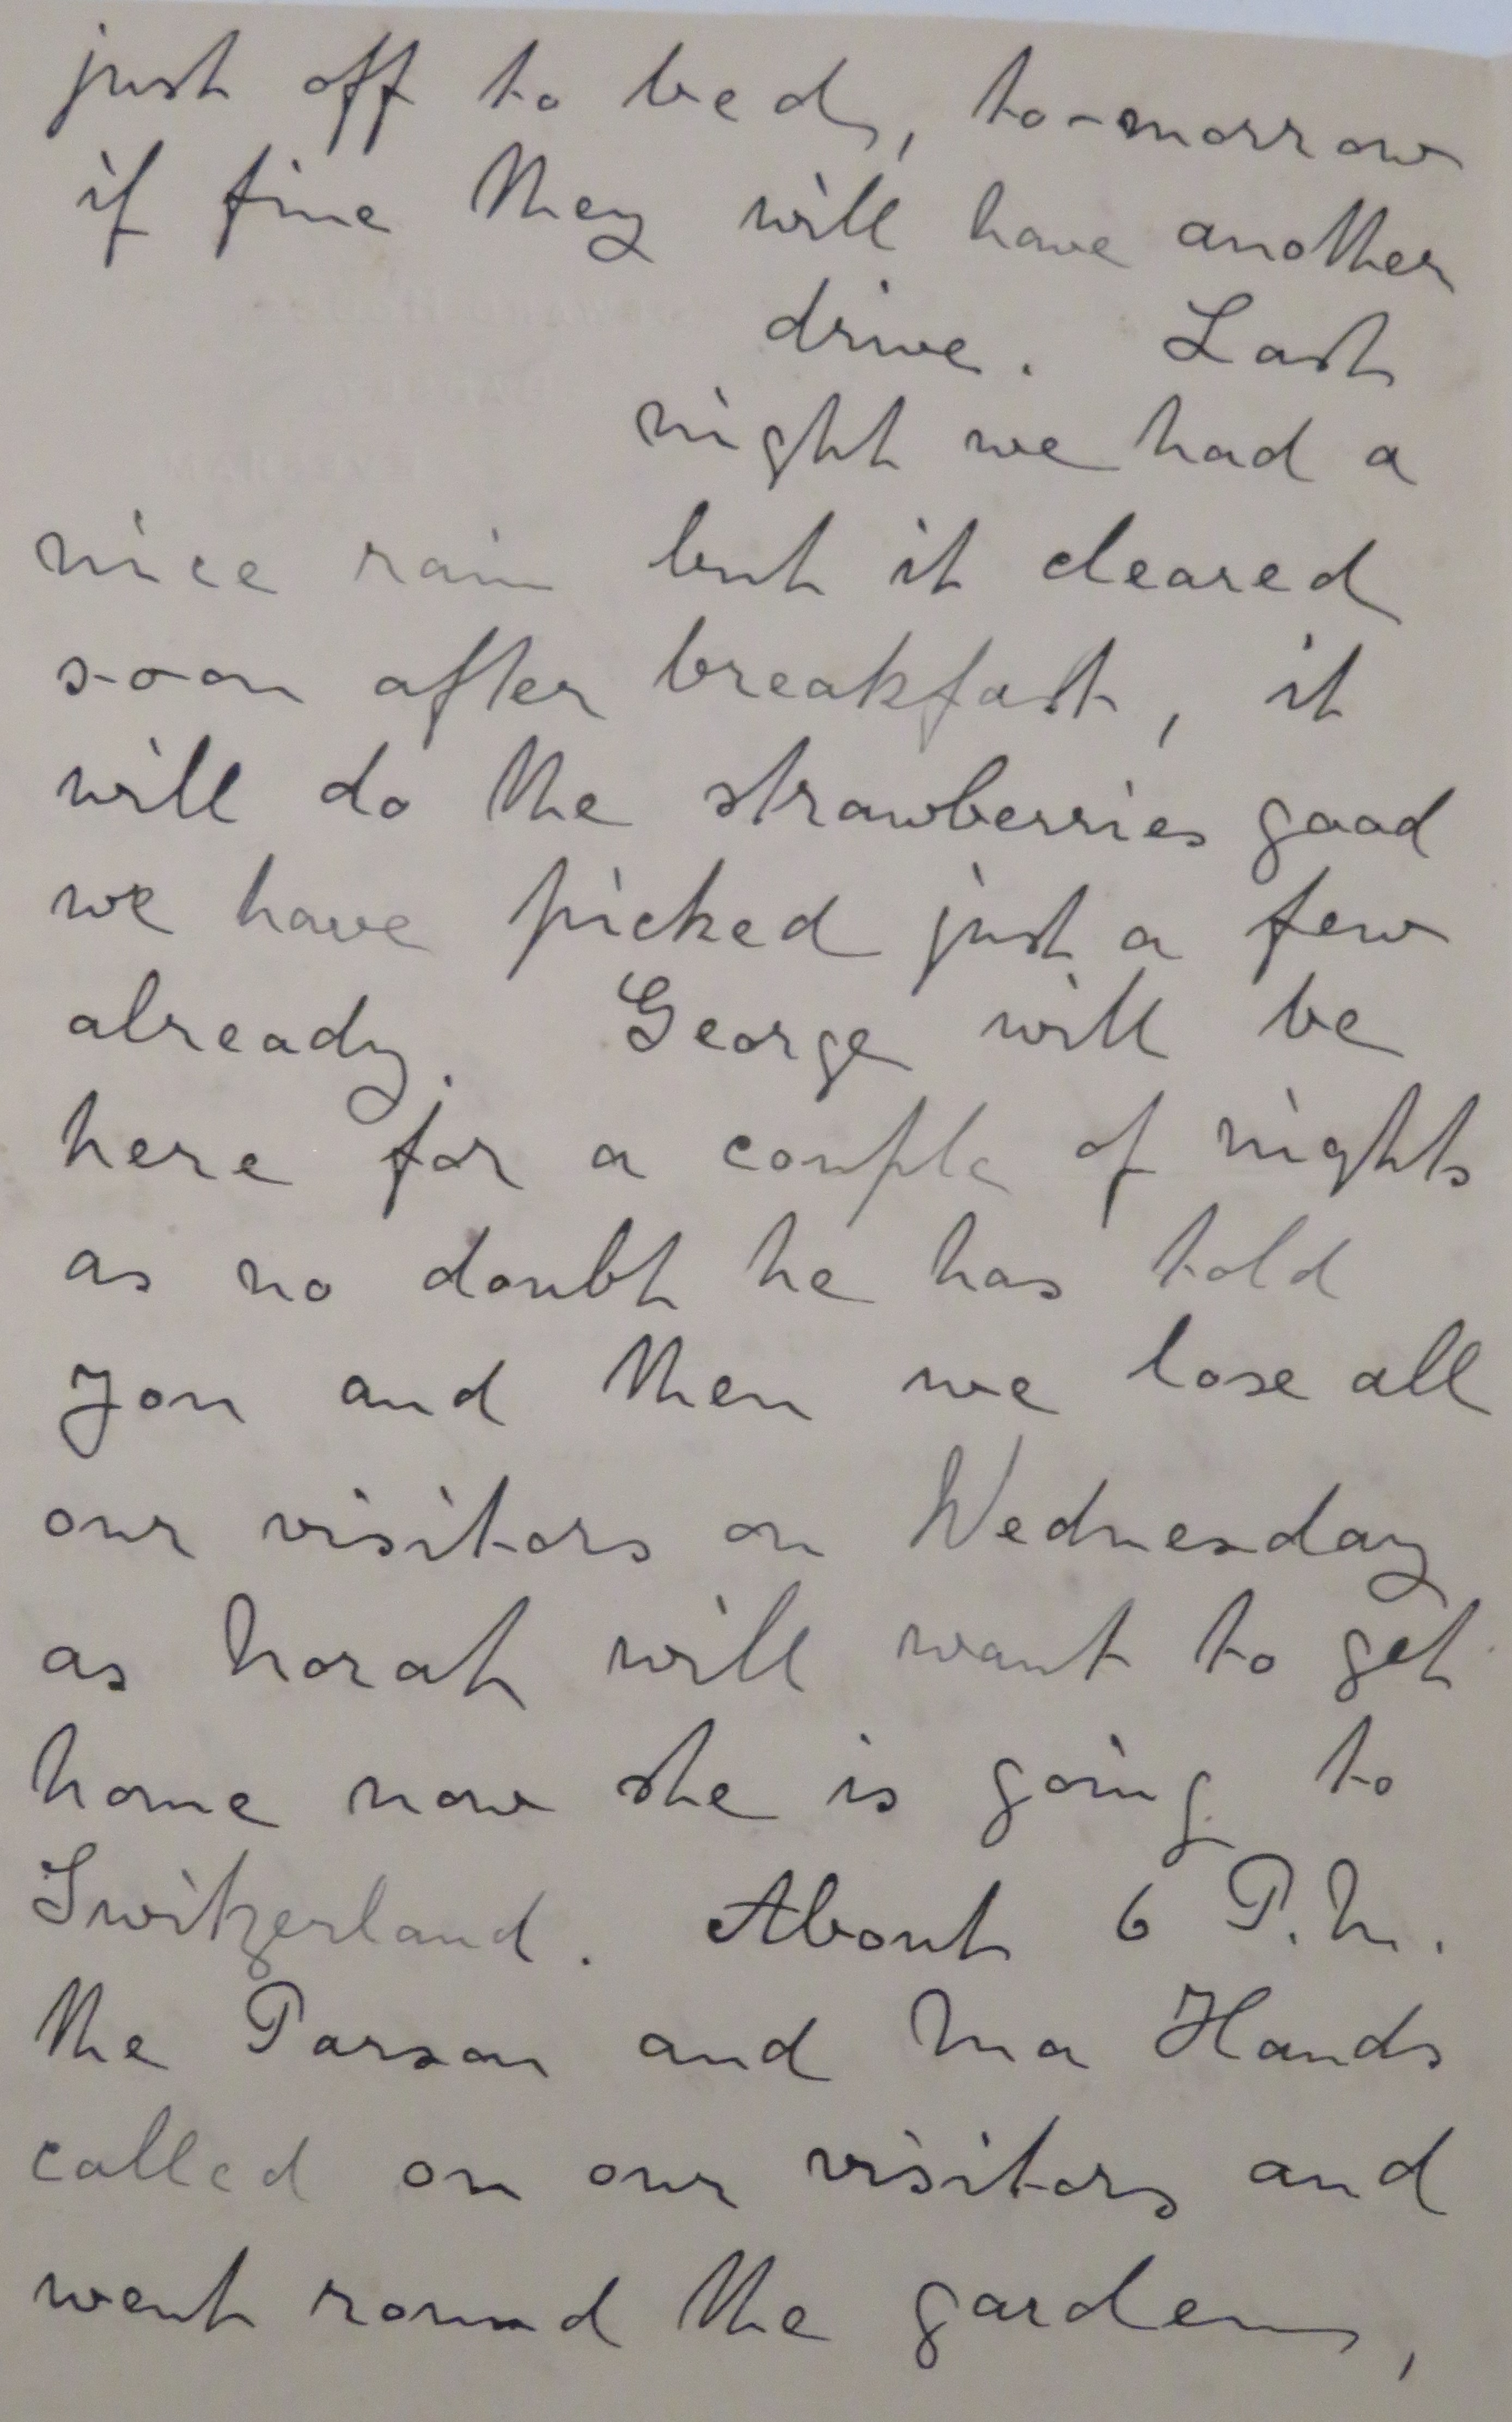 just off to bed, to-morrow
if fine they will have another
drive. Last
night we had a
nice rain but it cleared
soon after breakfast, it
will do the strawberries good
we have picked just a few
already. George will be
here for a couple of nights
as no doubt he has told
you and then we lose all
our visitors on Wednesday
as Norah will want to get
home now she is going to
Switzerland. About 6 P.M.
the Parson and Ma Hands
called on our visitors and
went round the garden,